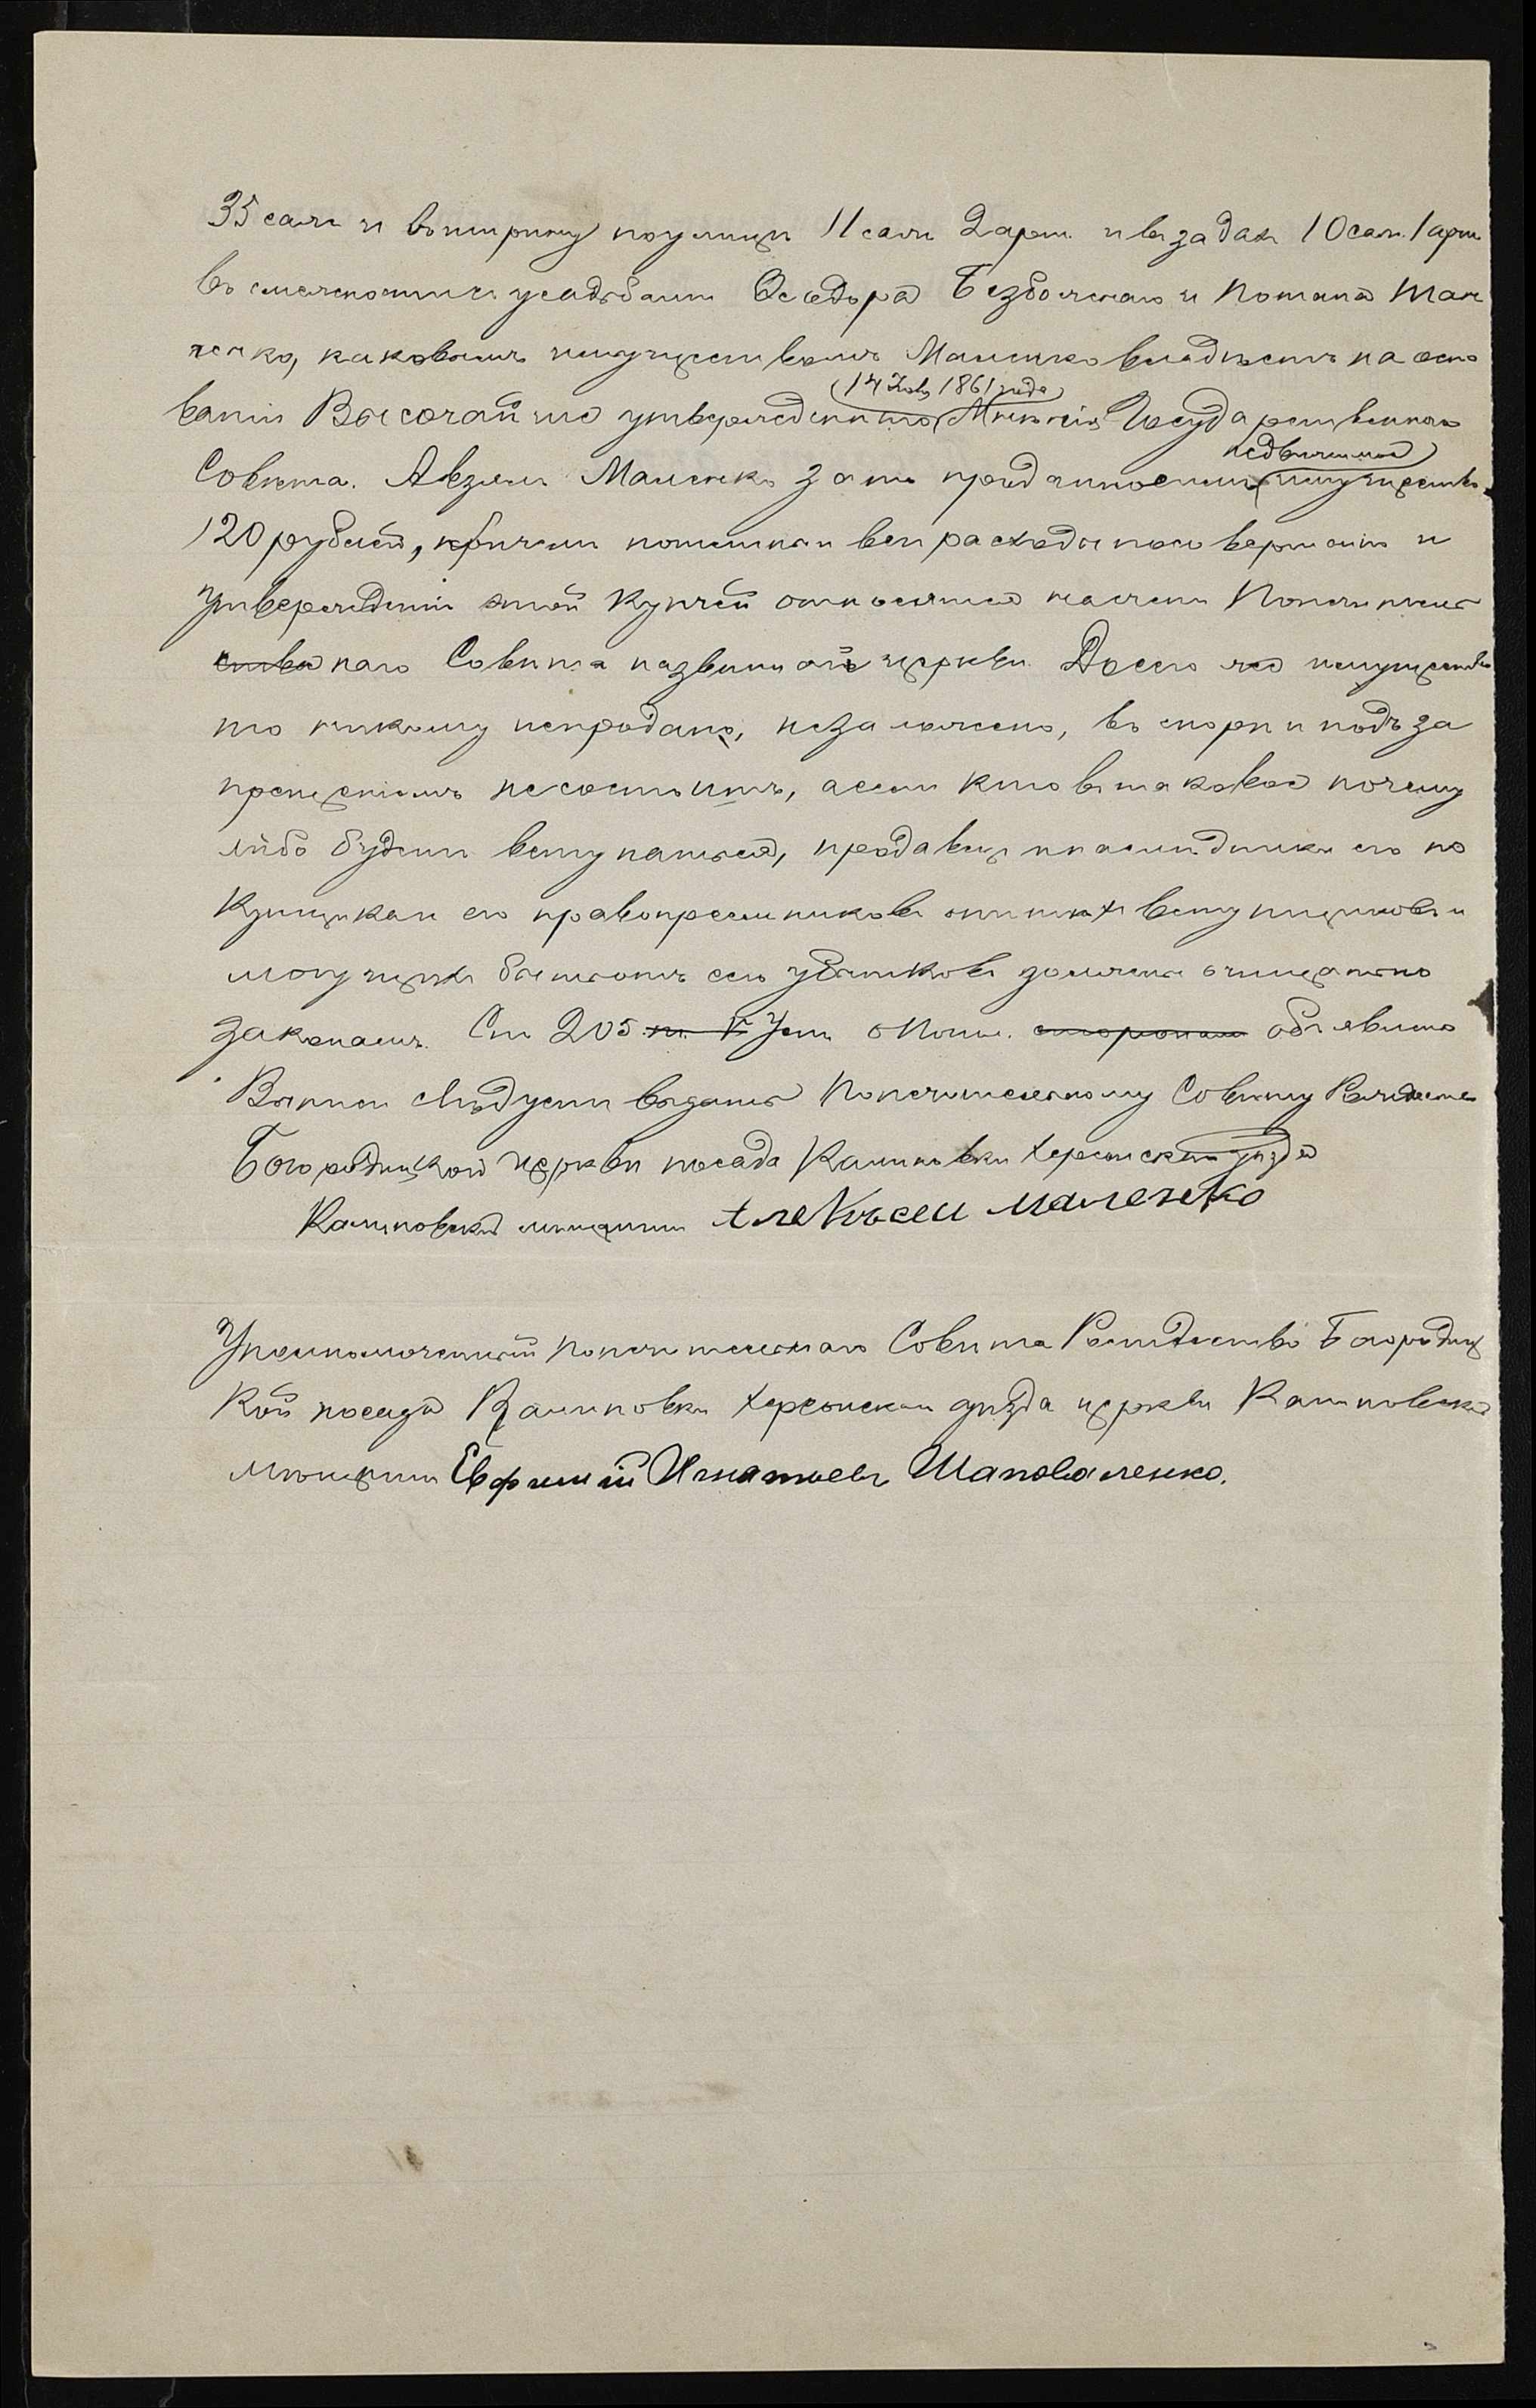 35 саж и въ ширину по улицѣ 11 саж 2 арш. и въ задах 10 саж. 1 арш
въ смежности съ усадьбами Ѳеодора Безбожнаго и Потапа Ман
женко, каковымъ имуществомъ Маленко владѣетъ на осно
(14 Ноя 1861 года)
ваніи Высочайше утвержденнаго Мнѣнія Государственнаго
недвижимое
Совѣта. А взялъ Маленко за то проданное имъ имущество
120 рублей, причемъ пошлины и всѣ расходы по совершенію и
утвержденію этой купчей относятся на счетъ Попечитель
ство наго Совѣта названной церкви До сего же имуществ
то никому не продано, не заложено, въ спорѣ и подъ за
прещеніемъ не состоитъ, а если кто въ таковое почему
либо будетъ вступаться, продавец и наслѣдники его по
купщика и его правопреемниковъ отъ тѣхъ вступщиковъ и
могущихъ быть отъ сего убытковъ должны очищать по
законамъ. Ст 205 Уст о Пошл. сторонам объявлена
Выпись слѣдуетъ выдать Попечительному Совѣту Рождество
Богородицкой церкви посада Калиновки Херсонскаго уѣзда
Калиновскій мѣщанинъ Алекъсей Маленко
Уполномоченный Попечительнаго Совѣта Рождество Богородиц
кой посада Калиновки Херсонскаго уѣзда церкви Калиновскій
мѣщанинъ Евфимій Игнатьевъ Шаповаленко.